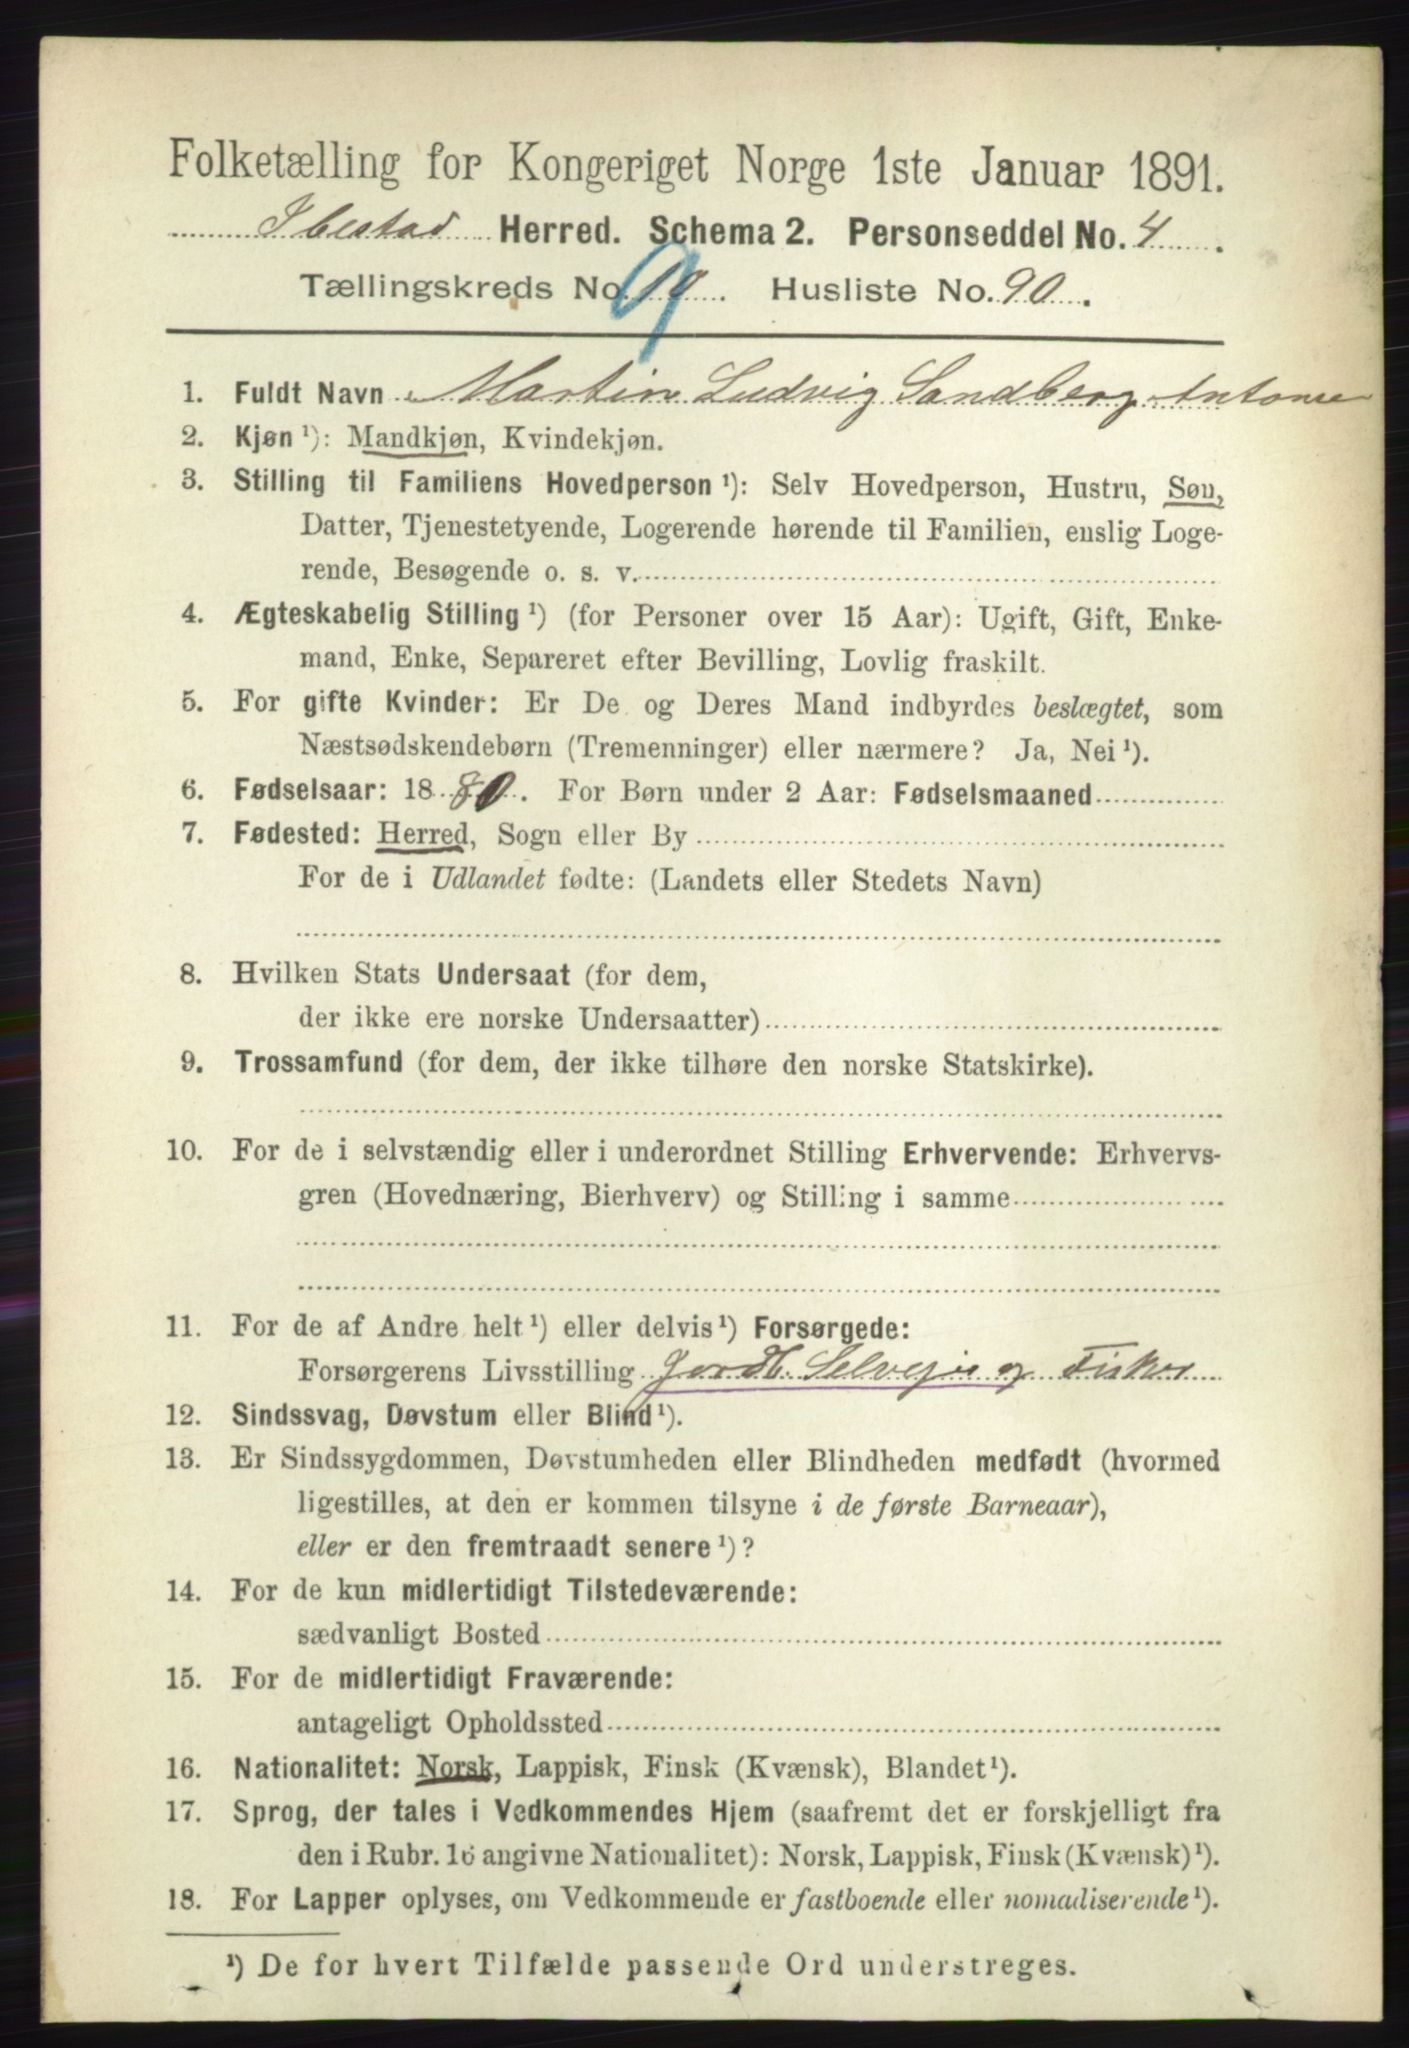 Folketælling for Kongeriget Norge 1ste Januar 1891.
Ibestad Herred. Schema 2. Personseddel No. 4.
Tællingskreds No. 10. 9 Husliste No. 90.
1. Fuldt Navn Martin Ludvig Sandberg Antonse
2. Kjøn ¹): Mandkjøn, Kvindekjøn.
3. Stilling til Familiens Hovedperson ¹): Selv Hovedperson, Hustru, Søn,
Datter, Tjenestetyende, Logerende hørende til Familien, enslig Loge-
rende, Besøgende o. s. v.
4. Ægteskabelig Stilling ¹) (for Personer over 15 Aar): Ugift, Gift, Enke-
mand, Enke, Separeret efter Bevilling, Lovlig fraskilt.
5. For gifte Kvinder: Er De og Deres Mand indbyrdes beslægtet, som
Næstsødskendebørn (Tremenninger) eller nærmere? Ja, Nei ¹).
6. Fødselsaar: 1880. For Børn under 2 Aar: Fødselsmaaned
7. Fødested: Herred, Sogn eller By
For de i Udlandet fødte: (Landets eller Stedets Navn)
8. Hvilken Stats Undersaat (for dem,
der ikke ere norske Undersaatter)
9. Trossamfund (for dem, der ikke tilhøre den norske Statskirke).
10. For de i selvstændig eller i underordnet Stilling Erhvervende: Erhvervs-
gren (Hovednæring, Bierhverv) og Stilling i samme
11. For de af Andre helt ¹) eller delvis ¹) Forsørgede:
Forsørgerens Livsstilling Jordb. Selveje og Fisker
12. Sindssvag, Døvstum eller Blind ¹).
13. Er Sindssygdommen, Døvstumheden eller Blindheden medfødt (hvormed
ligestilles, at den er kommen tilsyne i de første Barneaar),
eller er den fremtraadt senere ¹)?
14. For de kun midlertidigt Tilstedeværende:
sædvanligt Bosted
15. For de midlertidigt Fraværende:
antageligt Opholdssted
16. Nationalitet: Norsk, Lappisk, Finsk (Kvænsk), Blandet ¹).
17. Sprog, der tales i Vedkommendes Hjem (saafremt det er forskjelligt fra
den i Rubr. 16 angivne Nationalitet): Norsk, Lappisk, Finsk (Kvænsk) ¹).
18. For Lapper oplyses, om Vedkommende er fastboende eller nomadiserende ¹).
¹) De for hvert Tilfælde passende Ord understreges.